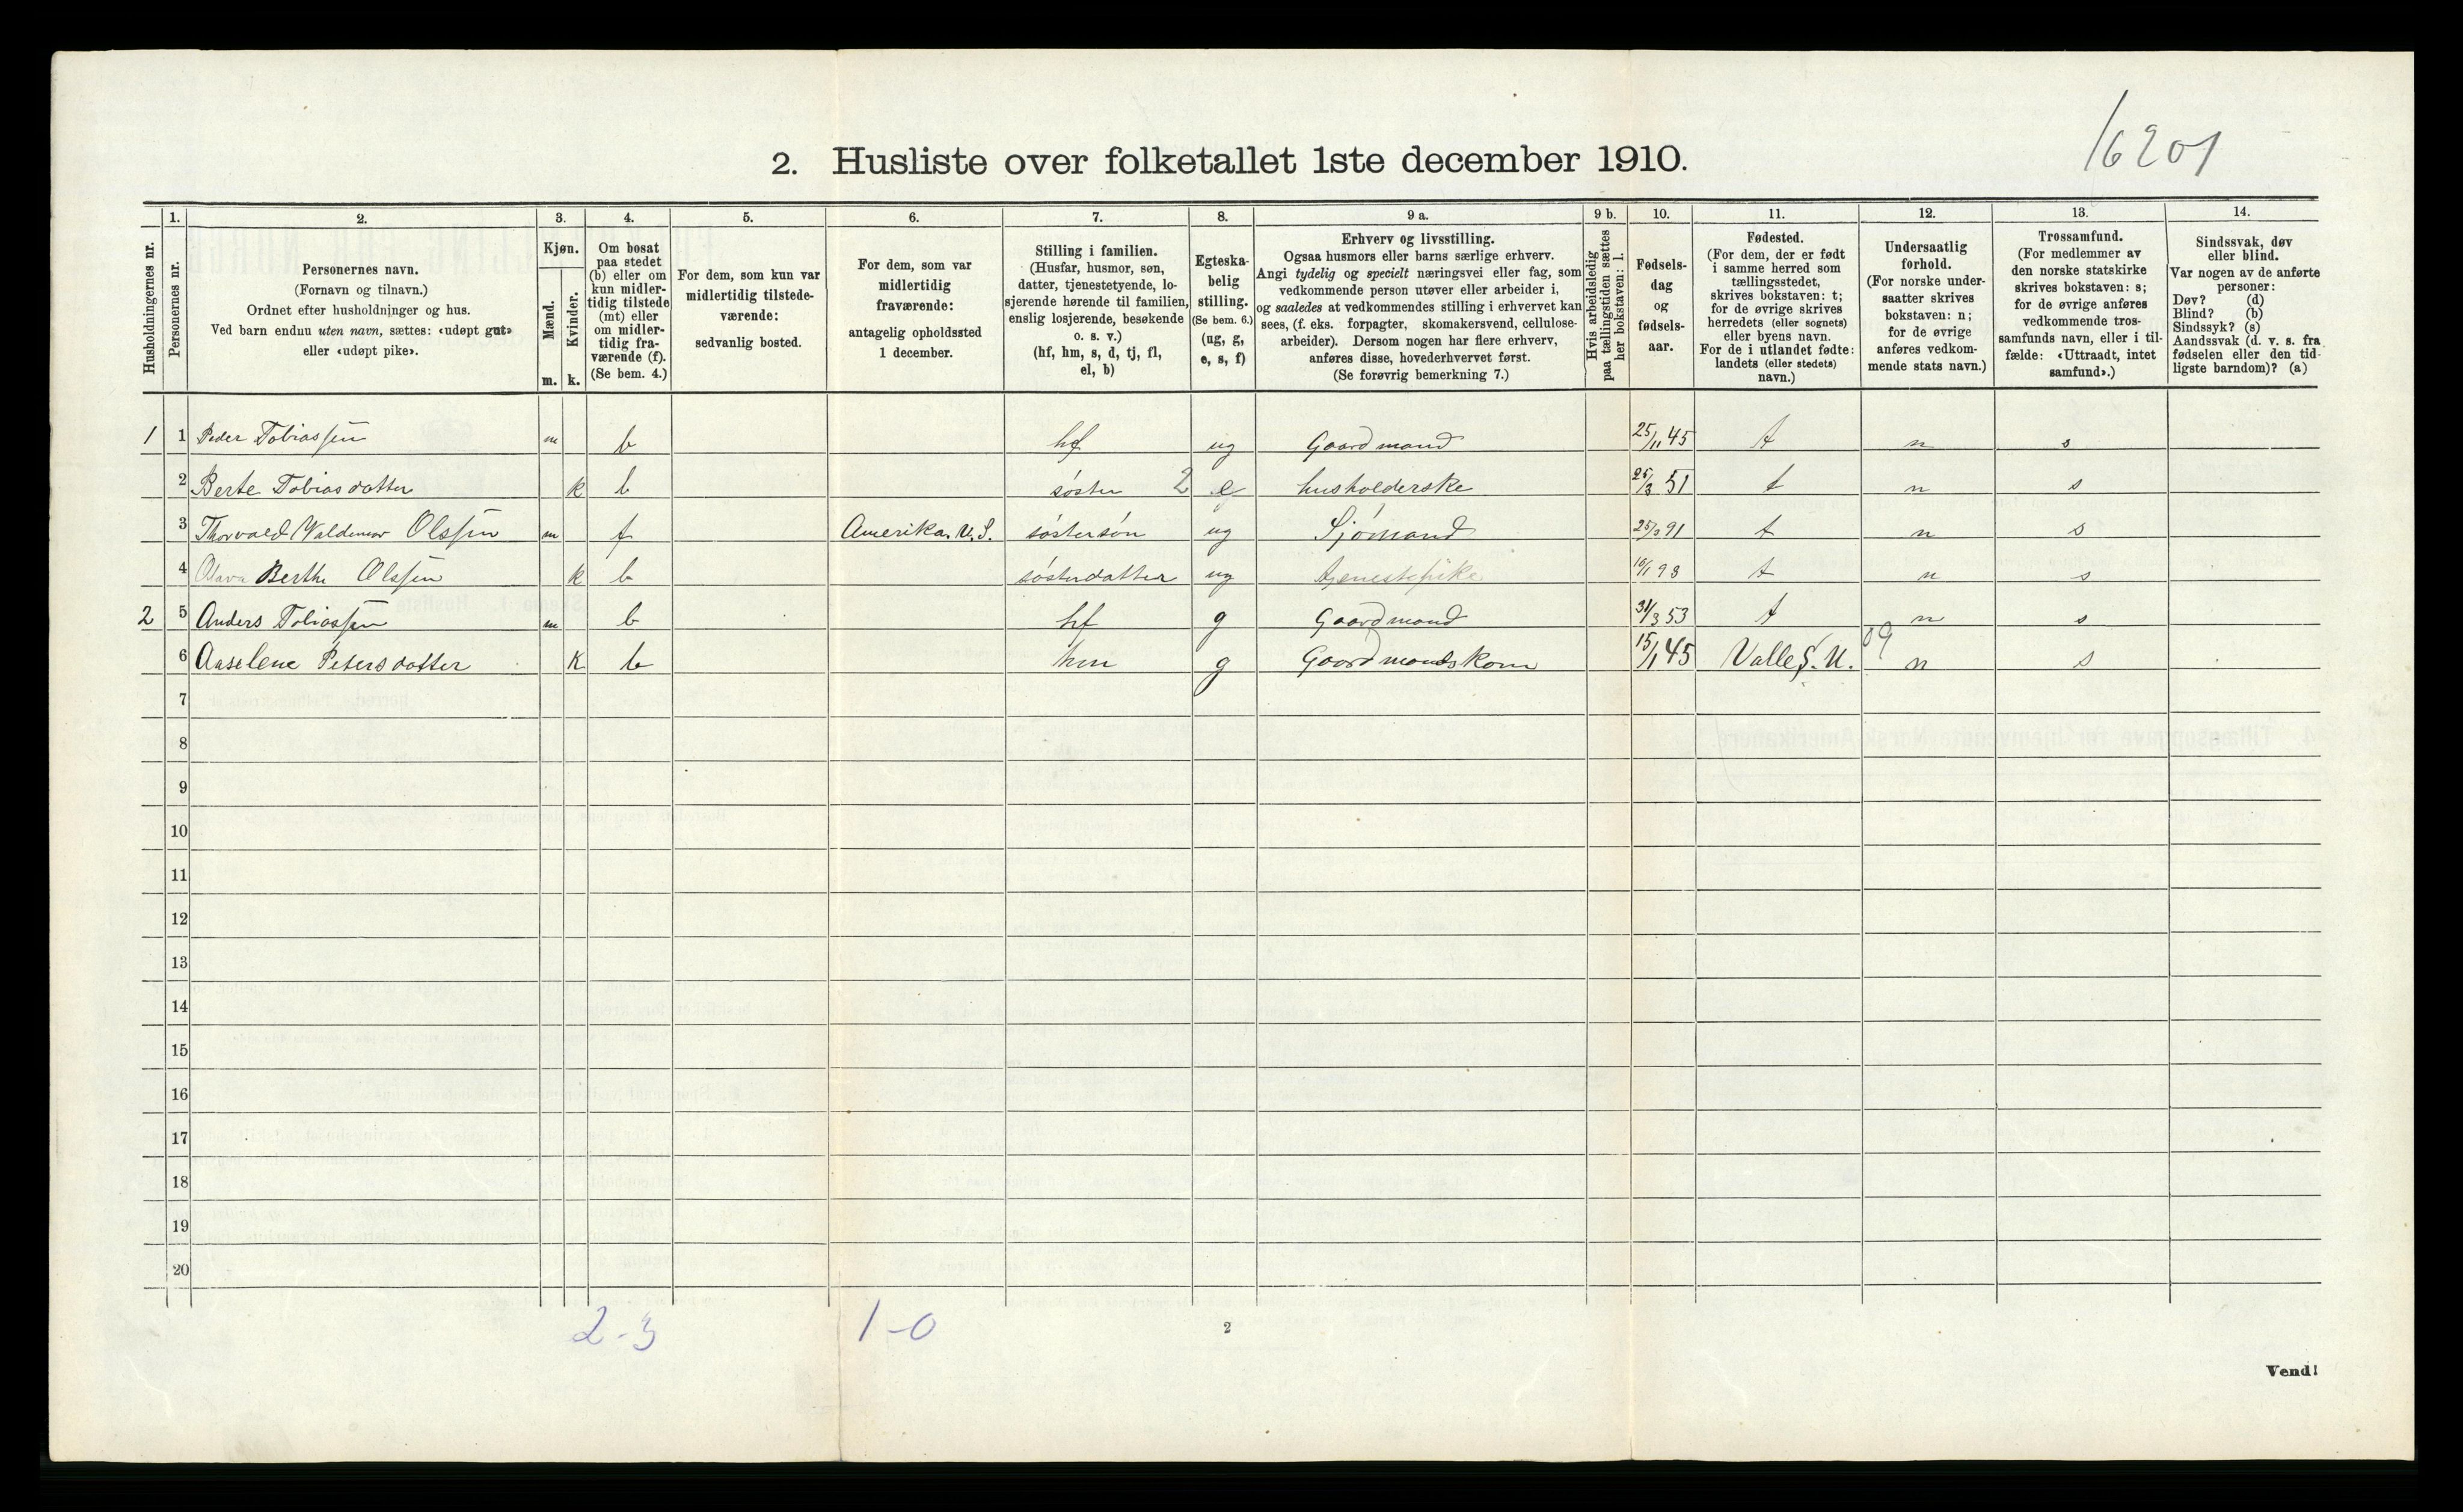 16201
2. Husliste over folketallet 1ste december 1910.
Husholdningernes nr.
1. Personernes nr.
2. Personernes navn. (Fornavn og tilnavn.) Ordnet efter husholdninger og hus. Ved barn endnu uten navn, sættes: «udøpt gut» eller «udøpt pike».
3. Kjøn. Mænd. m. Kvinder. k.
4. Om bosat paa stedet (b) eller om kun midlertidig tilstede (mt) eller om midlertidig fraværende (f). (Se bem. 4.)
5. For dem, som kun var midlertidig tilstedeværende: sedvanlig bosted.
6. For dem, som var midlertidig fraværende: antagelig opholdssted 1 december.
7. Stilling i familien. (Husfar, husmor, søn, datter, tjenestetyende, losjerende hørende til familien, enslig losjerende, besøkende o. s. v.) (hf, hm, s, d, tj, fl, el, b)
8. Egteskabelig stilling. (Se bem. 6.) (ug, g, e, s, f)
9 a. Erhverv og livsstilling. Ogsaa husmors eller barns særlige erhverv. Angi tydelig og specielt næringsvei eller fag, som vedkommende person utøver eller arbeider i, og saaledes at vedkommendes stilling i erhvervet kan sees, (f. eks. forpagter, skomakersvend, cellulosearbeider). Dersom nogen har flere erhverv, anføres disse, hovederhvervet først. (Se forøvrig bemerkning 7.)
9 b. Hvis arbeidsledig paa tællingstiden sættes her bokstaven: l.
10. Fødselsdag og fødselsaar.
11. Fødested. (For dem, der er født i samme herred som tællingsstedet, skrives bokstaven: t; for de øvrige skrives herredets (eller sognets) eller byens navn. For de i utlandet fødte: landets (eller stedets) navn.)
12. Undersaatlig forhold. (For norske undersaatter skrives bokstaven: n; for de øvrige anføres vedkommende stats navn.)
13. Trossamfund. (For medlemmer av den norske statskirke skrives bokstaven: s; for de øvrige anføres vedkommende trossamfunds navn, eller i tilfælde: «Uttraadt, intet samfund».)
14. Sindssvak, døv eller blind. Var nogen av de anførte personer: Døv? (d) Blind? (b) Sindssyk? (s) Aandssvak (d. v. s. fra fødselen eller den tidligste barndom)? (a)
1 1 Peder Tobiassen m b hf ug Gaardmand 25/11 45 t n s
2 Berte Tobiasdatter k b søster 2 e husholderske 25/3 51 t n s
3 Thorvald Valdemar Olssen m f Amerika. U. S. søstersøn ug Sjømand 25/3 91 t n s
4 Berthe Olssen k b søsterdatter ug tjenestepike 10/1 98 t n s
2 5 Anders Tobiassen m b hf g Gaardmand 31/3 53 t n s
6 Aaselene Petersdatter k b hm g Gaardmandskone 15/1 45 Valle S. U. 09 n s
7
8
9
10
11
12
13
14
15
16
17
18
19
20
2-3 1-0
2
Vend!